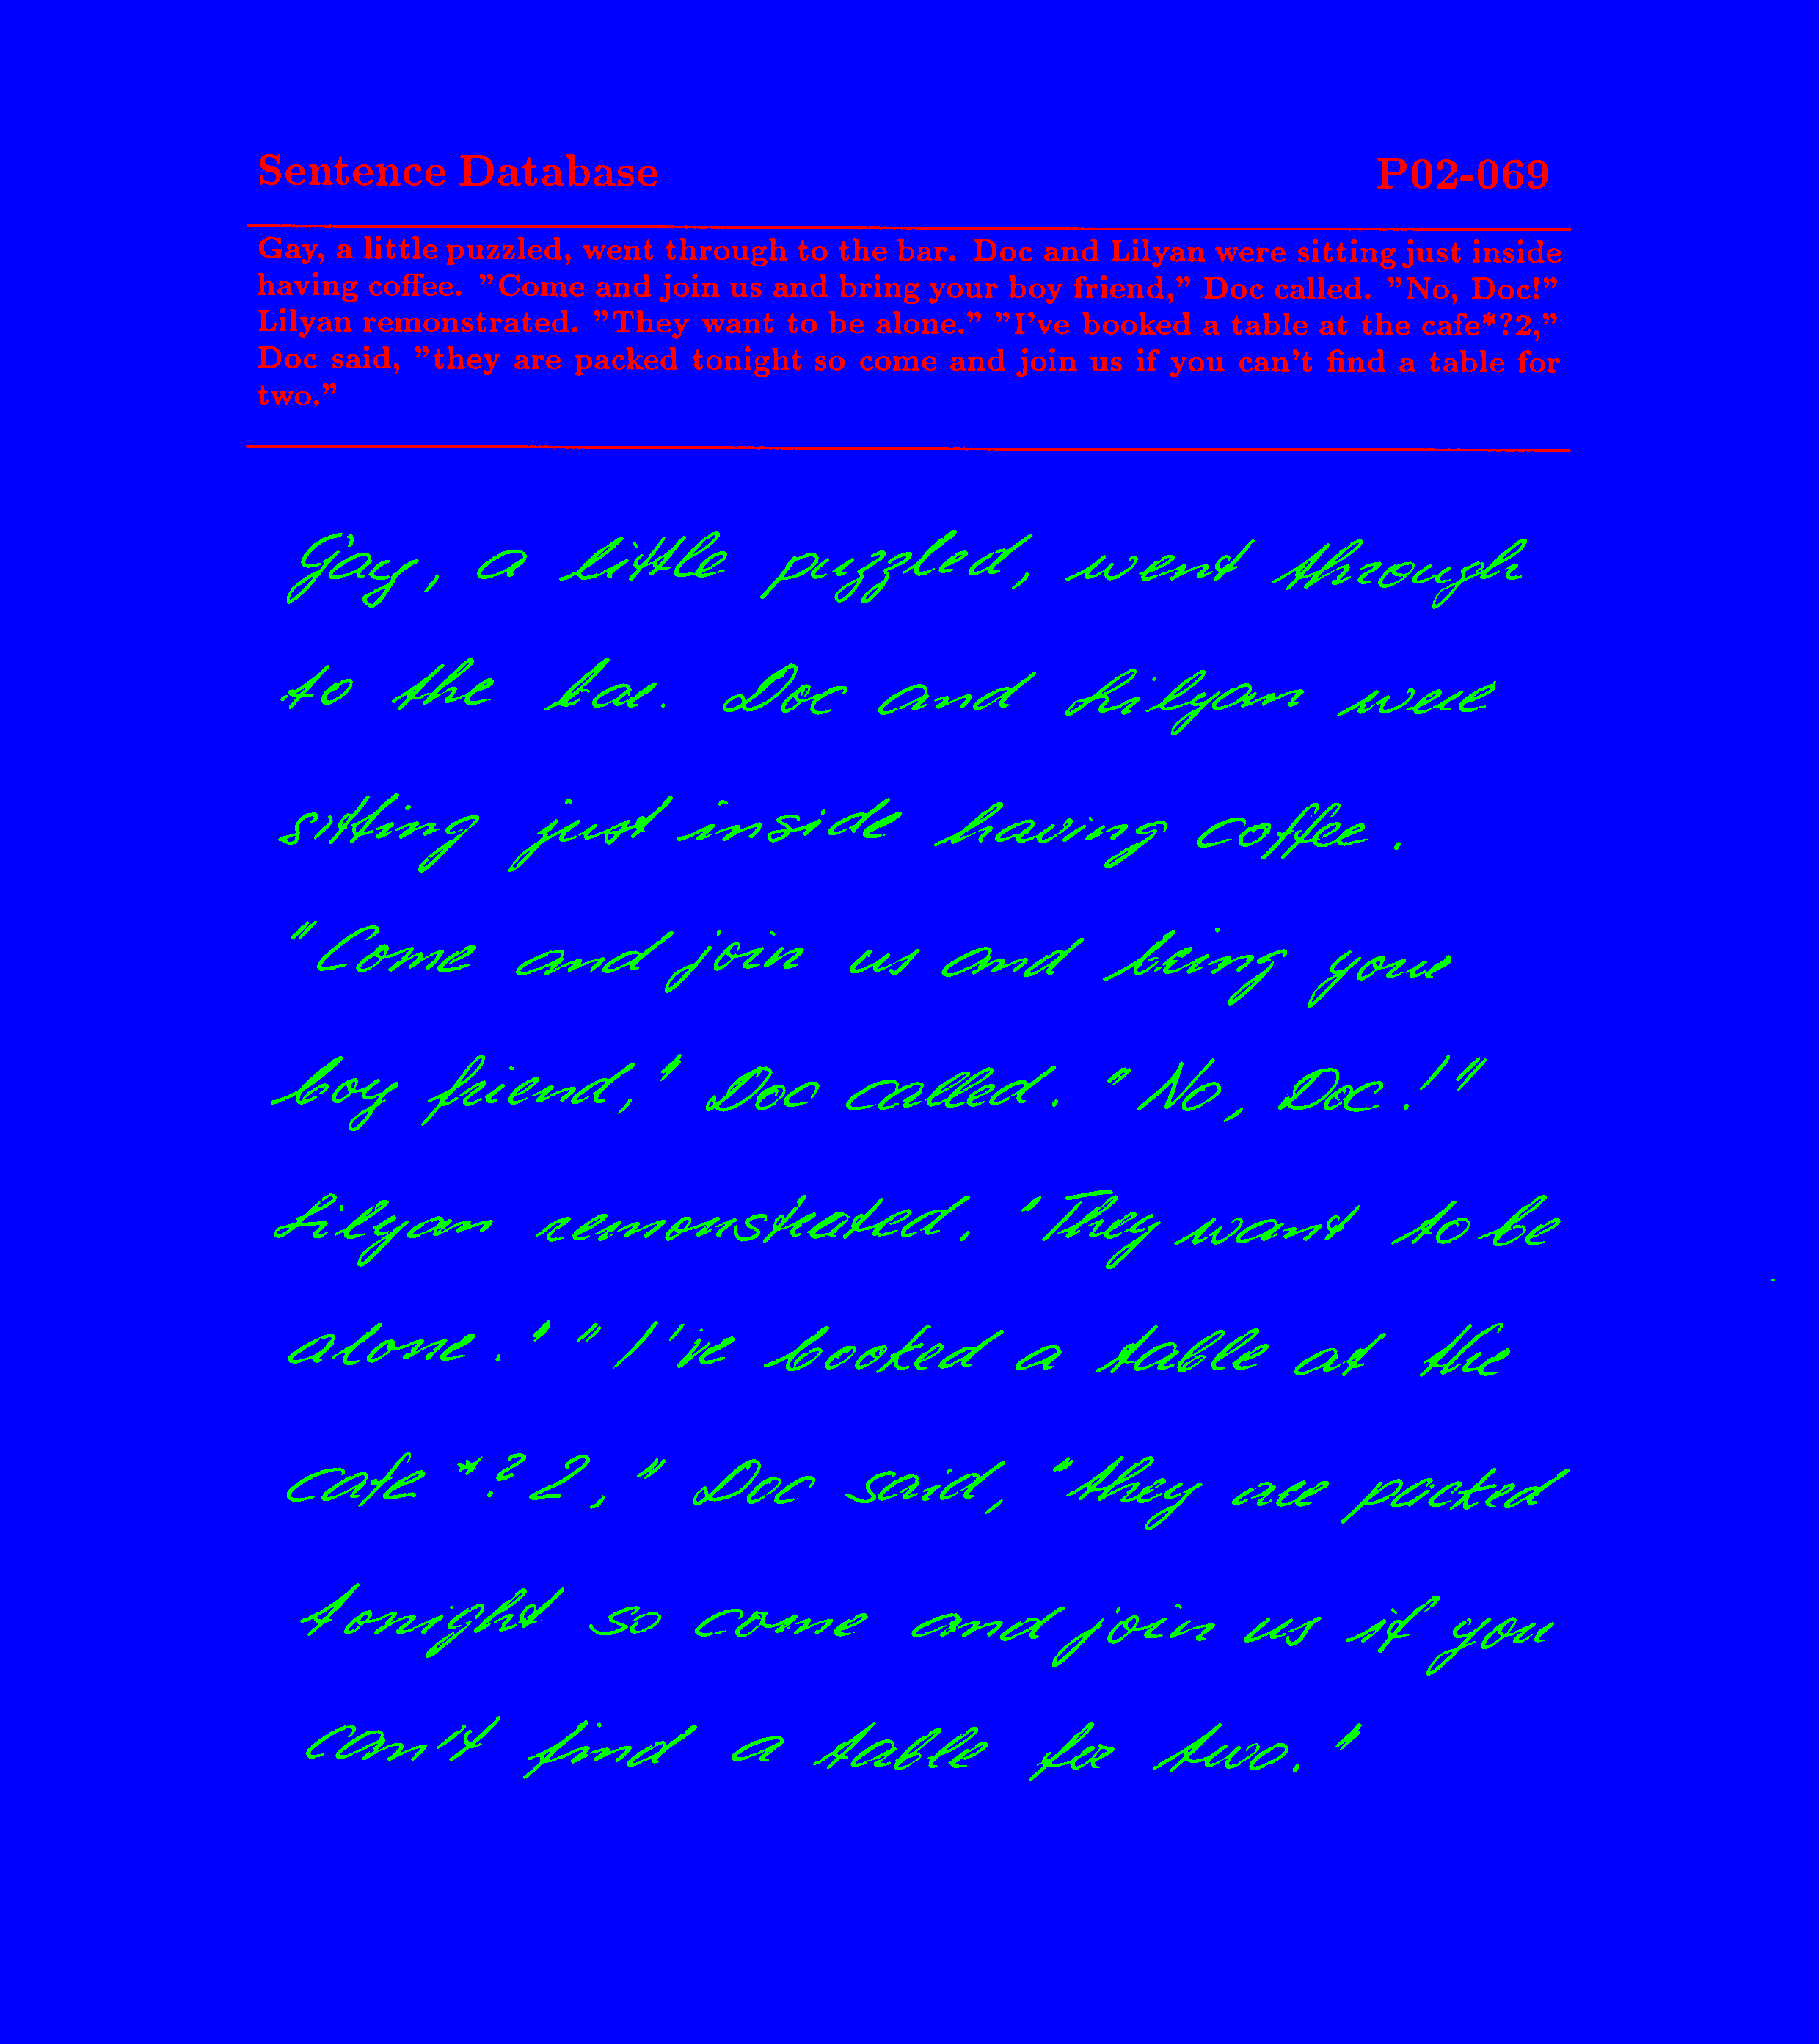 Sentence Database P02-069
Gay, a little puzzled, went through to the bar. Doc and Lilyan were sitting just inside
having coffee. "Come and join us and bring your boy friend," Doc called. "No, Doc!"
Lilyan remonstrated. "They want to be alone." "I've booked a table at the cafe*?2,"
Doc said, "they are packed tonight so come and join us if you can't find a table for
two."
Gay, a little puzzled, went through
to the bar. Doc and Lilyan were
sitting just inside having coffee.
"Come and join us and bring your
boy friend," Doc called. "No, Doc!"
Lilyan remonstrated. "They want to be
alone." "I've booked a table at the
cafe *?2," Doc said, "they are packed
tonight so come and join us if you
can't find a table for two."